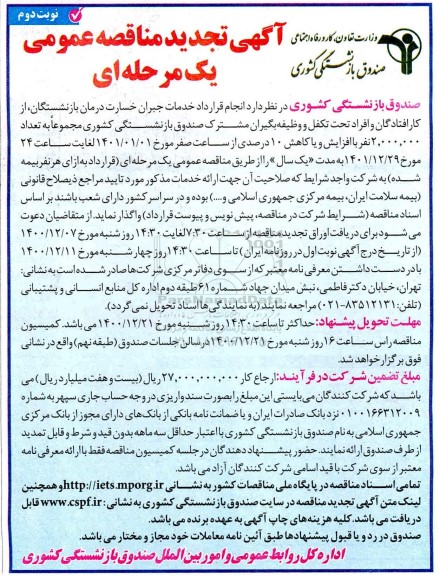 نوبت دوم
وزارت تعاون، کار و رفاه اجتماعی
صندوق بازنشستگی کشوری
آگهی تجدید مناقصه عمومی
یک مرحله ای
صندوق بازنشستگی کشوری در نظر دارد انجام قرارداد خدمات جبران خسارت درمان بازنشستگان، از
کارافتادگان و افراد تحت تکفل و وظیفه بگیران مشترک صندوق بازنشستگی کشوری مجموعاً به تعداد
۲,۰۰۰,۰۰۰ نفر با افزایش و یا کاهش ۱۰ درصدی از ساعت صفر مورخ ۱۴۰۱/۰۱/۰۱ لغایت ساعت ۲۴
مورخ ۱۴۰۱/۱۲/۲۹ به مدت «یک سال» را از طریق مناقصه عمومی یک مرحله ای (قرارداد به ازای هر نفر بیمه
شده) به شرکت واجد شرایط که صلاحیت آن جهت ارائه خدمات مذکور مورد تایید مراجع ذیصلاح قانونی
(بیمه سلامت ایران، بیمه مرکزی جمهوری اسلامی و....) بوده و در سراسر کشور دارای شعب باشند بر اساس
اسناد مناقصه (شرایط شرکت در مناقصه، پیش نویس و پیوست قرارداد) واگذار نماید. از متقاضیان دعوت
می شود برای دریافت اوراق تجدید مناقصه از ساعت ۷:۳۰ لغایت ۱۴:۳۰ روز شنبه مورخ ۱۴۰۰/۱۲/۰۷
(از تاریخ درج آگهی نوبت اول در روزنامه ایران) تا ساعت ۱۴:۳۰ روز چهارشنبه مورخ ۱۴۰۰/۱۲/۱۱
با در دست داشتن معرفی نامه معتبر که از سوی دفاتر مرکزی شرکت ها صادر شده است به نشانی:
تهران، خیابان دکتر فاطمی، نبش میدان جهاد شماره ۶۱ طبقه دوم اداره کل منابع انسانی و پشتیبانی
(تلفن: ۸۳۵۱۲۱۳۱-۰۲۱) مراجعه نمایند. (به نمایندگی ها اسناد تحویل نمی گردد).
مهلت تحویل پیشنهاد: حداکثر تا ساعت ۱۴:۳۰ روز شنبه مورخ ۱۴۰۰/۱۲/۲۱ می باشد. کمیسیون
مناقصه راس ساعت ۱۶ روز شنبه مورخ ۱۴۰۰/۱۲/۲۱ در سالن جلسات صندوق (طبقه نهم) واقع در نشانی
فوق برگزار خواهد شد.
مبلغ تضمین شرکت در فرآیند: ارجاع کار ۲۷,۰۰۰,۰۰۰,۰۰۰ ریال (بیست و هفت میلیارد ریال) می
باشد که شرکت کنندگان می بایستی این مبلغ را بصورت سند واریزی در وجه حساب جاری سپهر به شماره
۰۱۰۰۱۶۶۳۱۲۰۰۹ نزد بانک صادرات ایران و یا ضمانت نامه بانکی از بانک های دارای مجوز از بانک مرکزی
جمهوری اسلامی به نام صندوق بازنشستگی کشوری با اعتبار حداقل سه ماهه بدون قید و شرط و قابل تمدید
از طرف صندوق ارائه نمایند. حضور پیشنهاد دهندگان در جلسه کمیسیون مناقصه فقط با ارائه معرفی نامه
معتبر از سوی شرکت با قید اسامی شرکت کنندگان آزاد می باشد.
تمامی اسناد مناقصه در پایگاه ملی مناقصات کشور به نشانی http://iets.mporg.ir و همچنین
لینک متن آگهی تجدید مناقصه در سایت صندوق بازنشستگی کشوری به نشانی: www.cspf.ir قابل
دریافت می باشد. کلیه هزینه های چاپ آگهی به عهده برنده می باشد.
صندوق در رد و یا قبول پیشنهادها طبق آئین نامه معاملات خود مجاز و مختار می باشد.
اداره کل روابط عمومی و امور بین الملل صندوق بازنشستگی کشوری